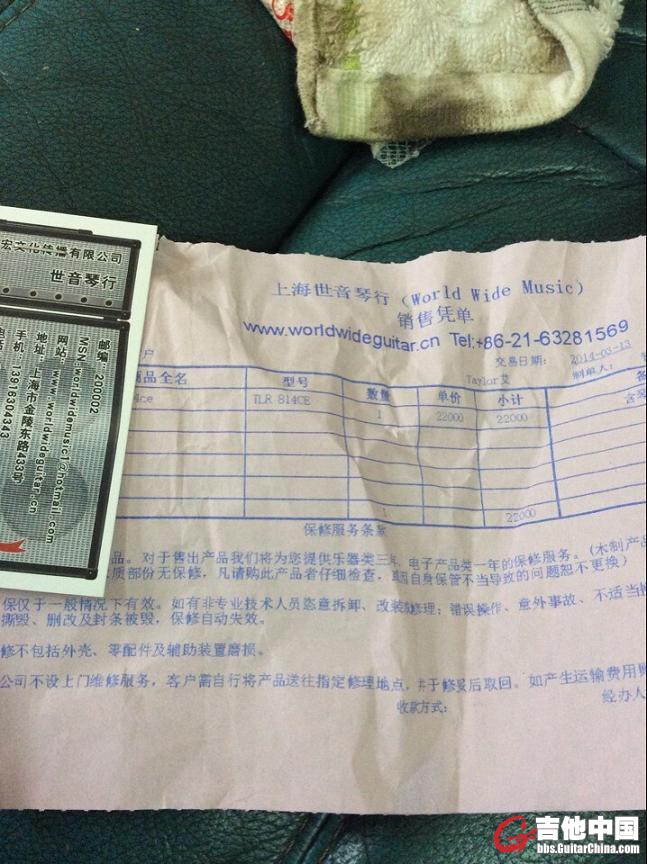 宏文化传播有限公司
世音琴行
邮编:200002
MSN:worldwidemusic1@hotmail.com
网站:www.worldwideguitar.cn
地址:上海市金陵东路433号
手机:13916304343
上海世音琴行(World Wide Music)
销售凭单
www.worldwideguitar.cn Tel:+86-21-63281569
户
交易日期: 2014-03-13
Taylor艾
制单人:
商品全名 型号 数量 单价 小计 备
4ce TLR 814CE 1 22000 22000 含
1 22000
保修服务条款
品。对于售出产品我们将为您提供乐器类三年,电子产品类一年的保修服务。(木制产品
质部份无保修,凡请购此产品者仔细检查,或因自身保管不当导致的问题恕不更换)
保仅于一般情况下有效。如有非专业技术人员恣意拆卸、改装或修理;错误操作、意外事故、不适当
撕毁、删改及封条被毁,保修自动失效。
修不包括外壳、零配件及辅助装置磨损。
公司不设上门维修服务,客户需自行将产品送往指定修理地点,并于修妥后取回。如产生运输费用
收款方式:
经办人
吉他中国
bbs.GuitarChina.com